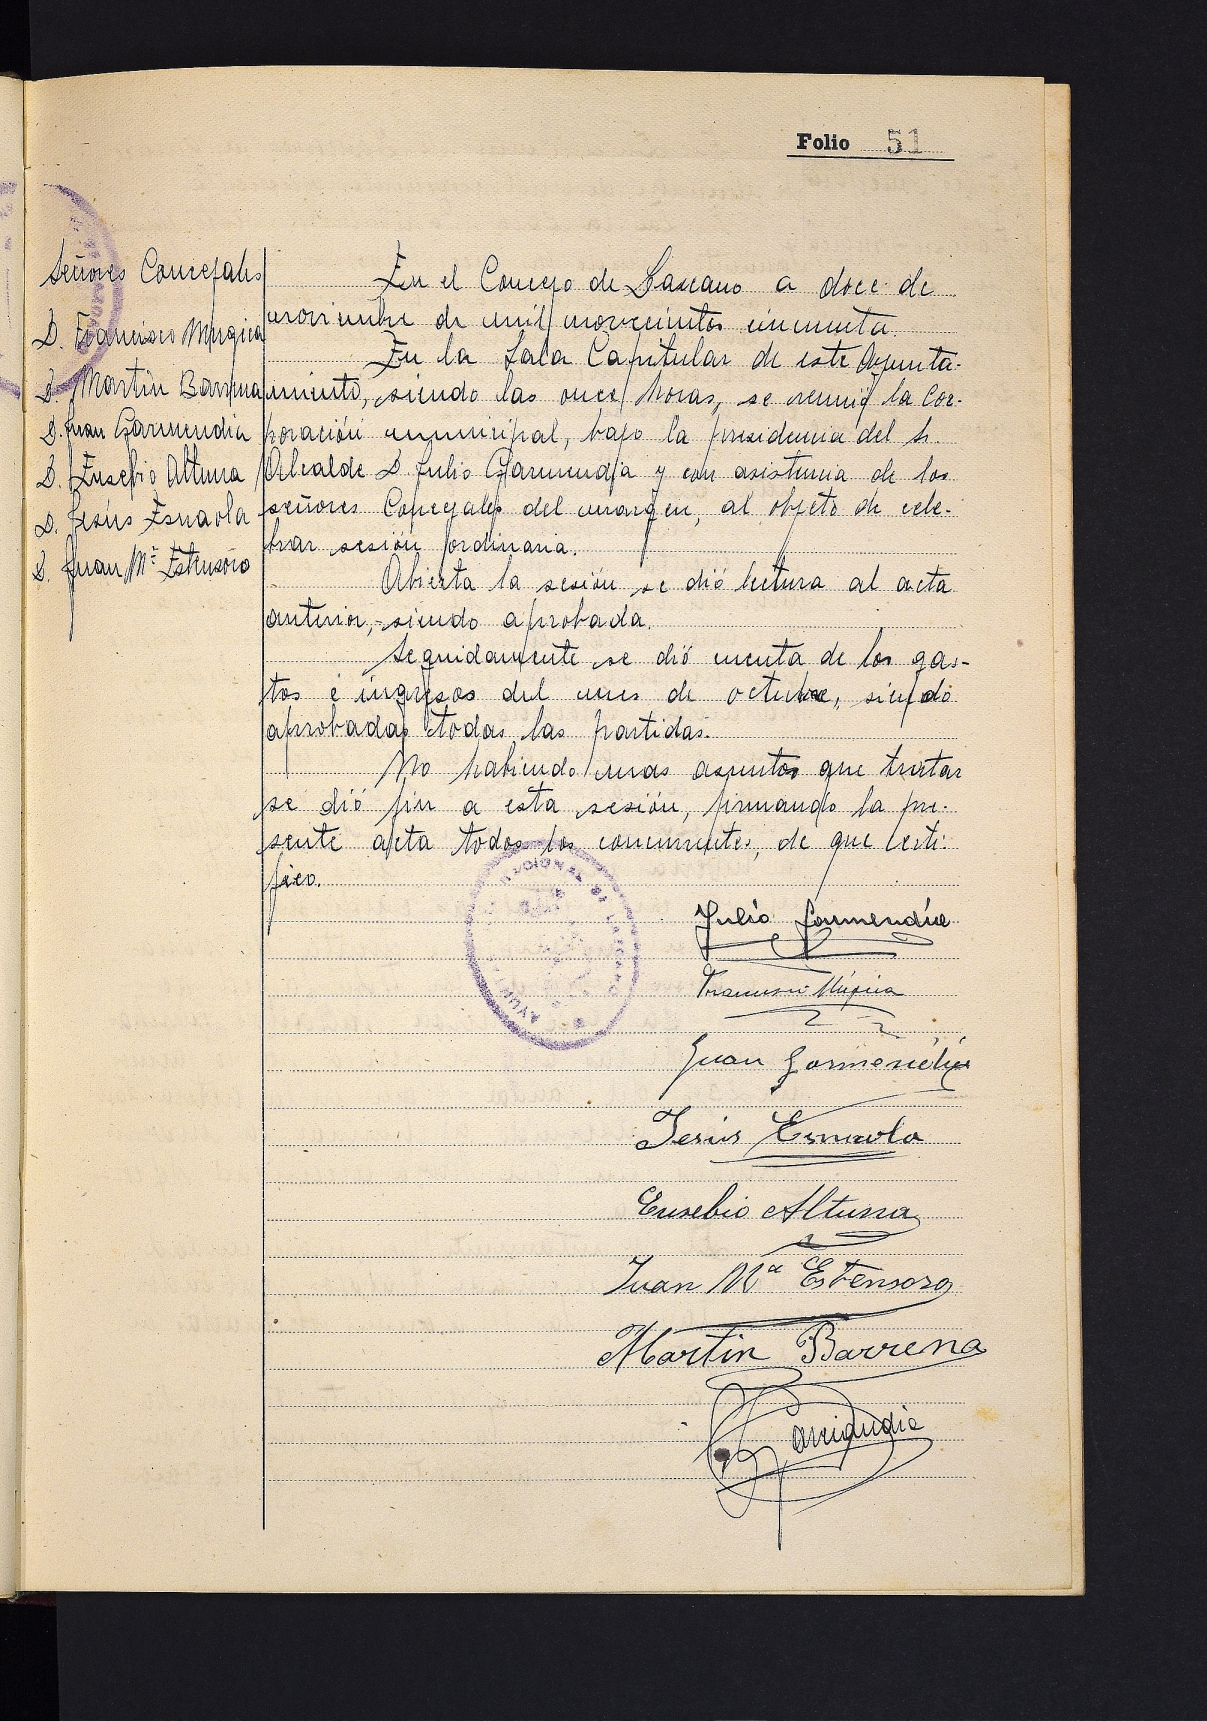 Folio 51
Señores Concejales
D. Francisco Mugica
D. Martin Barrena
D. Juan Garmendia
D. Eusebio Altuna
D. Jesús Esnaola
D. Juan Mª Estensoro
En el Concejo de Lazcano a doce de
noviembre de mil novecientos cincuenta.
En la Sala Capitular de este Ayunta-
miento, siendo las once horas, se reunió la Cor-
poración municipal, bajo la presidencia del Sr.
Alcalde D. Julio Garmendia y con asistencia de los
señores Concejales del margen, al objeto de cele-
brar sesión ordinaria.
Abierta la sesión se dió lectura al acta
anterior, siendo aprobada.
Seguidamente se dió cuenta de los gas-
tos é ingresos del mes de octubre, siendo
aprobadas todas las partidas.
No habiendo mas asuntos que tratar
se dió fin a esta sesión, firmando la pre-
sente acta todos los concurrentes, de que certi-
fico.
Julio Garmendia
Francisco Múgica
Juan Garmendia
Jesús Esnaola
Eusebio Altuna
Juan Mª Estensoro
Martin Barrena